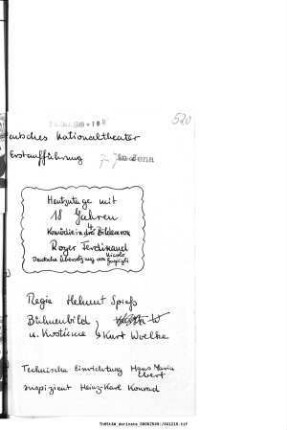 520
Deutsches Nationaltheater
Erstaufführung
Heutzutage mit
18 Jahren
Komödie in drei Bildern von
Roger Ferdinand
Deutsche Übersetzung von
Regie Helmut Spieß
Bühnenbild
u. Kostüme Kurt Woelke
Technische Einrichtung Hans Maria
Ebert
Inspizient Heinz-Karl Konrad